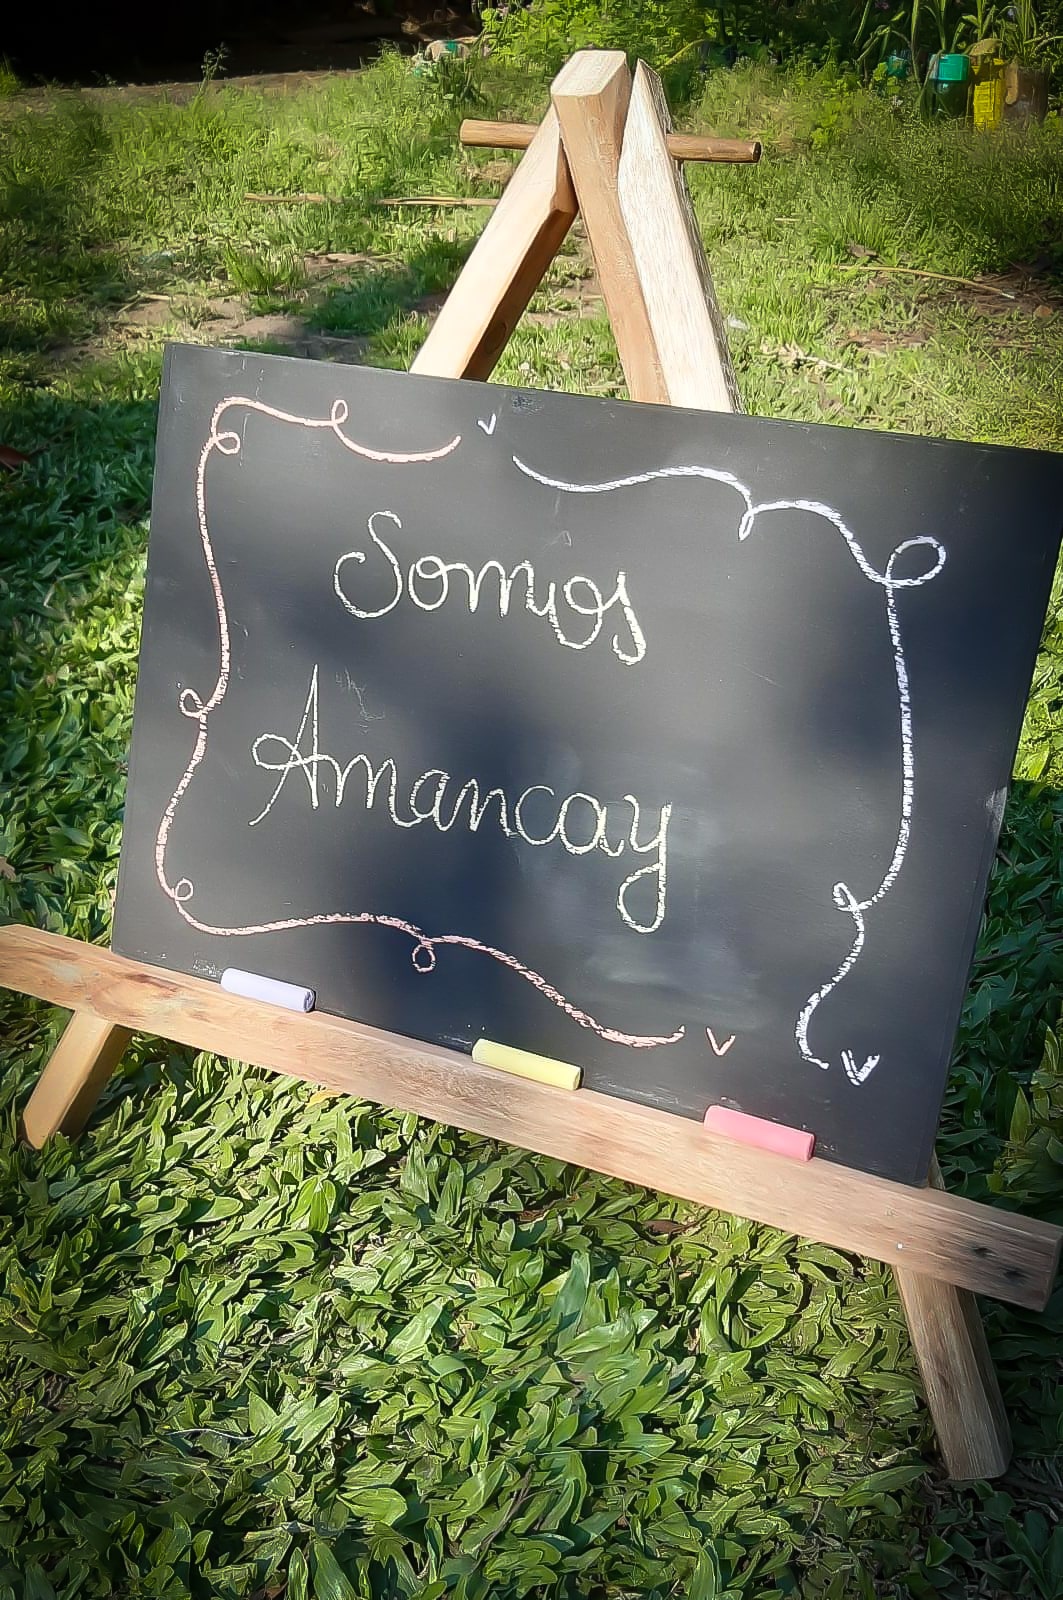 Somos
Amancay